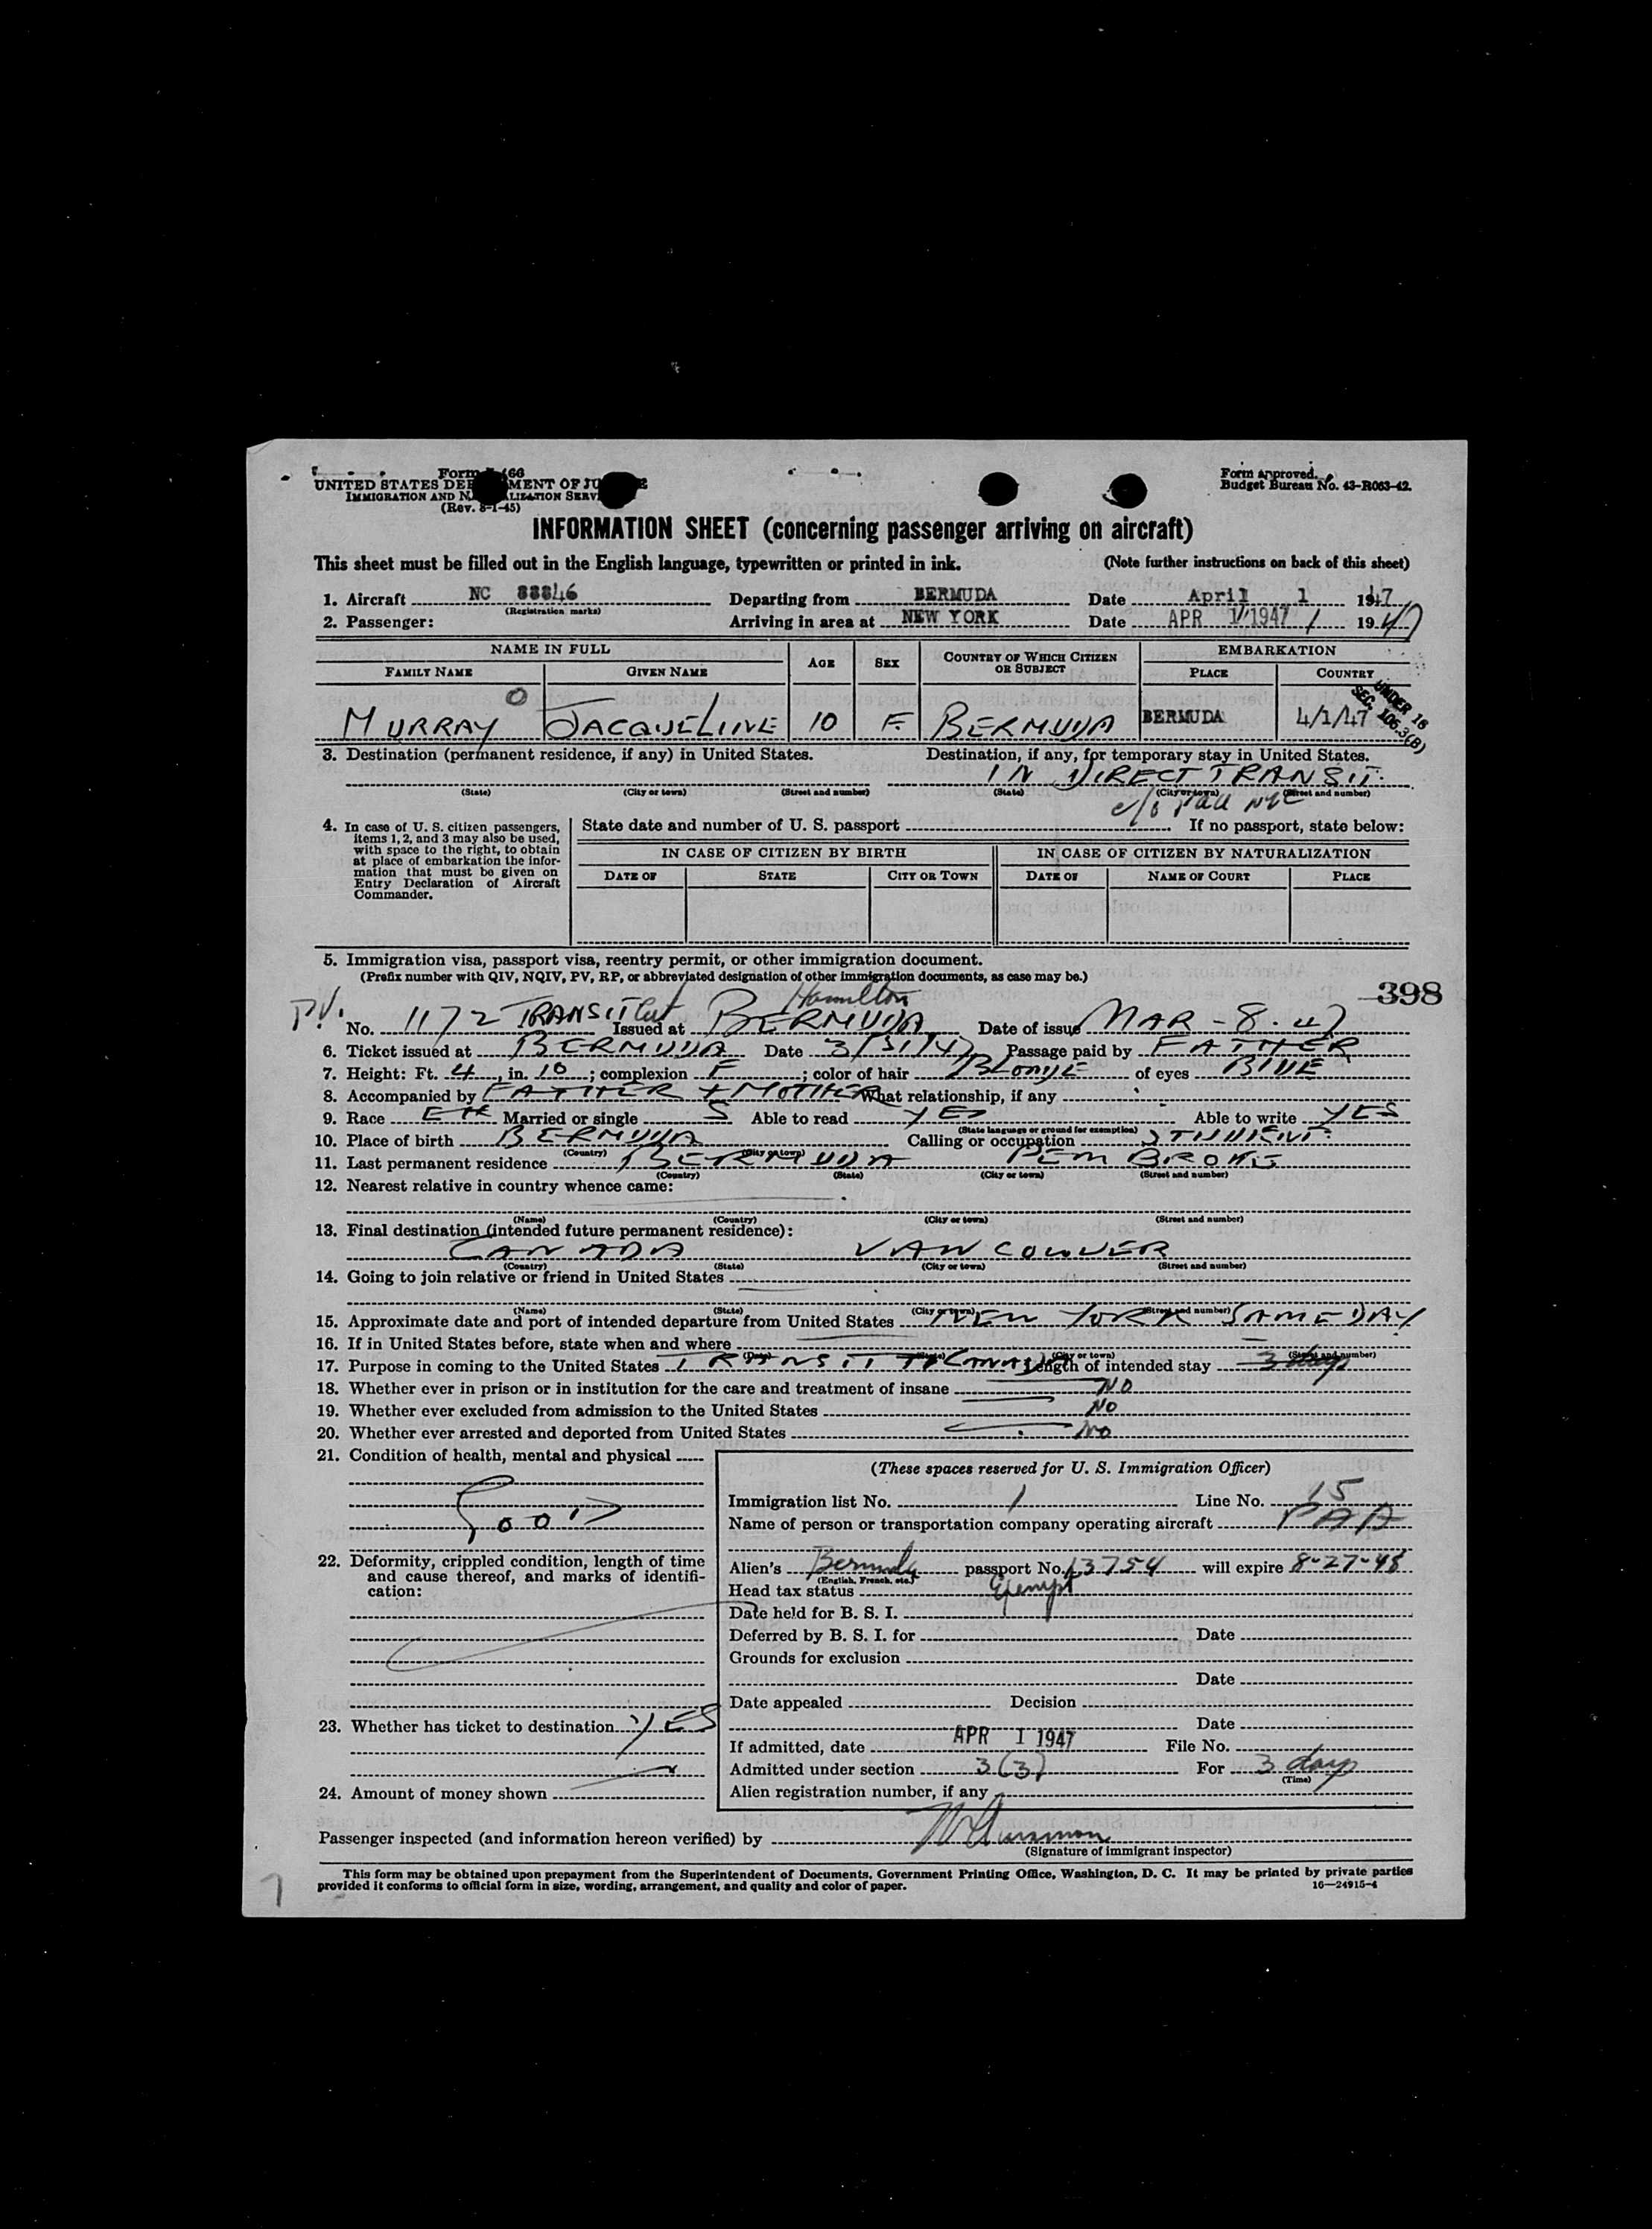 Form 466
UNITED STATES DEPARTMENT OF JUSTICE
IMMIGRATION AND NATURALIZATION SERVICE
(Rev. 8-1-45)
Form approved.
Budget Bureau No. 43-R063-42.
INFORMATION SHEET (concerning passenger arriving on aircraft)
This sheet must be filled out in the English language, typewritten or printed in ink. (Note further instructions on back of this sheet)
1. Aircraft NC 88846 Departing from BERMUDA Date April 1 1947
(Registration marks)
2. Passenger: Arriving in area at NEW YORK Date APR 1 1947 1 1947
NAME IN FULL AGE SEX COUNTRY OF WHICH CITIZEN OR SUBJECT EMBARKATION
FAMILY NAME GIVEN NAME PLACE COUNTRY
UNDER 16
SEC. 106.3(B)
MURRAY JACQUELINE 10 F. BERMUDA BERMUDA 4/1/47
3. Destination (permanent residence, if any) in United States. Destination, if any, for temporary stay in United States.
IN DIRECT TRANSIT.
(State) (City or town) (Street and number) (State) (City or town) (Street and number)
c/o PAA NYC
4. In case of U. S. citizen passengers, items 1, 2, and 3 may also be used, with space to the right, to obtain at place of embarkation the information that must be given on Entry Declaration of Aircraft Commander.
State date and number of U. S. passport If no passport, state below:
IN CASE OF CITIZEN BY BIRTH IN CASE OF CITIZEN BY NATURALIZATION
DATE OF STATE CITY OR TOWN DATE OF NAME OF COURT PLACE
5. Immigration visa, passport visa, reentry permit, or other immigration document.
(Prefix number with QIV, NQIV, PV, RP, or abbreviated designation of other immigration documents, as case may be.)
398
Hamilton
P.V. No. 1172 TRANSIT Issued at BERMUDA Date of issue MAR - 8. 47
6. Ticket issued at BERMUDA Date 3/31/47 Passage paid by FATHER
7. Height: Ft. 4, in. 10; complexion F; color of hair BLONDE of eyes BLUE
8. Accompanied by FATHER + MOTHER What relationship, if any
9. Race Married or single S Able to read YES Able to write YES
(State language or ground for exemption)
10. Place of birth BERMUDA Calling or occupation STUDENT
(Country) (City or town)
11. Last permanent residence BERMUDA PEMBROKE
(Country) (State) (City or town) (Street and number)
12. Nearest relative in country whence came:
(Name) (Country) (City or town) (Street and number)
13. Final destination (intended future permanent residence):
CANADA VANCOUVER
(Country) (State) (City or town) (Street and number)
14. Going to join relative or friend in United States
(Name) (State) (City or town) (Street and number)
15. Approximate date and port of intended departure from United States NEW YORK SAME DAY
16. If in United States before, state when and where
(Date) (State) (City or town) (Street and number)
17. Purpose in coming to the United States TRANSIT TO CANADA Length of intended stay 3 days
18. Whether ever in prison or in institution for the care and treatment of insane NO
19. Whether ever excluded from admission to the United States NO
20. Whether ever arrested and deported from United States NO
21. Condition of health, mental and physical
GOOD
22. Deformity, crippled condition, length of time and cause thereof, and marks of identification:
23. Whether has ticket to destination YES
24. Amount of money shown
(These spaces reserved for U. S. Immigration Officer)
Immigration list No. 1 Line No. 15
Name of person or transportation company operating aircraft PAA
Alien's Bermuda passport No. 13754 will expire 8-27-48
(English, French, etc.)
Head tax status Exempt
Date held for B. S. I.
Deferred by B. S. I. for Date
Grounds for exclusion
Date
Date appealed Decision
Date
If admitted, date APR 1 1947 File No.
Admitted under section 3(3) For 3 days
(Time)
Alien registration number, if any
Passenger inspected (and information hereon verified) by
(Signature of immigrant inspector)
This form may be obtained upon prepayment from the Superintendent of Documents, Government Printing Office, Washington, D. C. It may be printed by private parties
provided it conforms to official form in size, wording, arrangement, and quality and color of paper. 16—24915-4